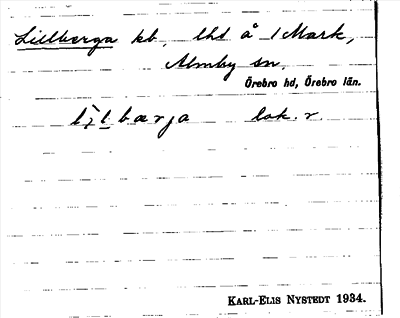 Lillberga kb, lht å 1 Mark,
Almby sn,
Örebro hd, Örebro län.
lok. r.
KARL-ELIS NYSTEDT 1934.